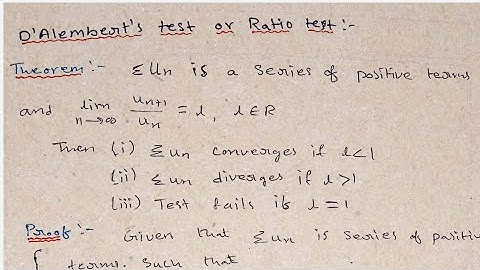 D'Alembert's test or Ratio test :-
Theorem :- ΣUn is a series of positive terms
and lim n→∞ un+1/un = l, l ∈ R
Then (i) Σun converges if l<1
(ii) Σun diverges if l>1
(iii) Test fails if l = 1
Proof :- Given that Σun is series of positiv
terms. Such that